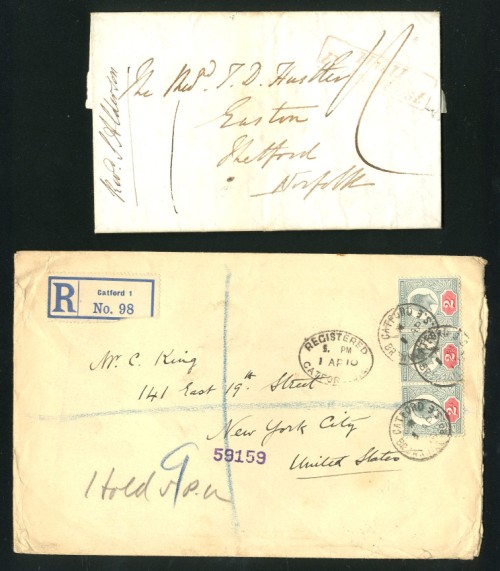 Revd. S. Alderson
The Revd. T. D. Hustler
Euston
Thetford
Norfolk
R
Catford 1
No. 98
REGISTERED
1 AP 10
Mr. C. King
141 East 19th Street
New York City
United States
59159
9
Hold
2
2
2
CATFORD
CATFORD